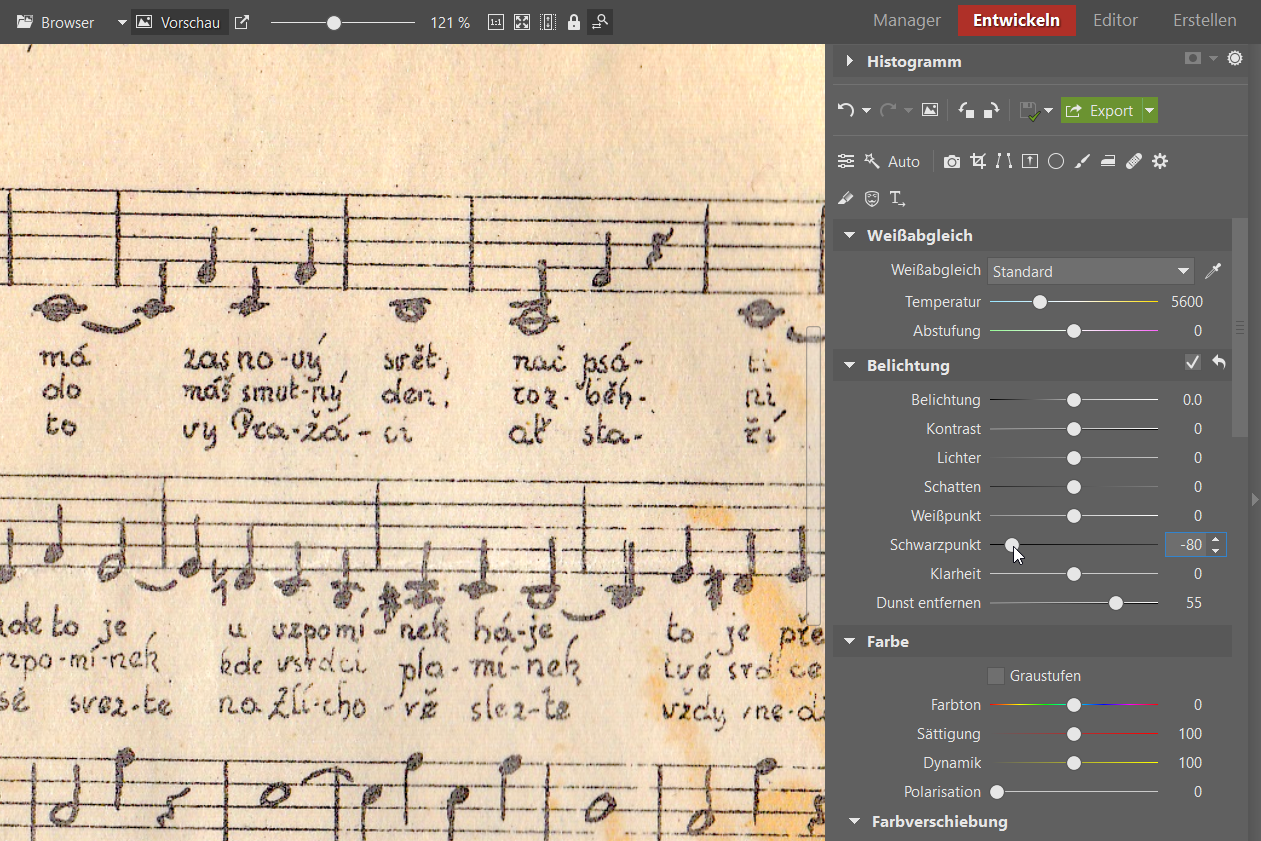 Browser Vorschau 121 % 1:1 Manager Entwickeln Editor Erstellen
Histogramm
Export
Auto
Weißabgleich
Weißabgleich Standard
Temperatur 5600
Abstufung 0
Belichtung
Belichtung 0.0
Kontrast 0
Lichter 0
Schatten 0
Weißpunkt 0
Schwarzpunkt -80
Klarheit 0
Dunst entfernen 55
Farbe
Graustufen
Farbton 0
Sättigung 100
Dynamik 100
Polarisation 0
Farbverschiebung
má zas no-vý svět, nač psá- ti
do máš smut-ný den, roz-běh- ni
to vy Pra-žá-ci ať sta- ří
kde to je u vzpomí-nek há-je to je pře
vzpo-mí-nek kde vsrdci pla-mí-nek tvé srdce
svez-te na Zlí-cho-vě slez-te vždy